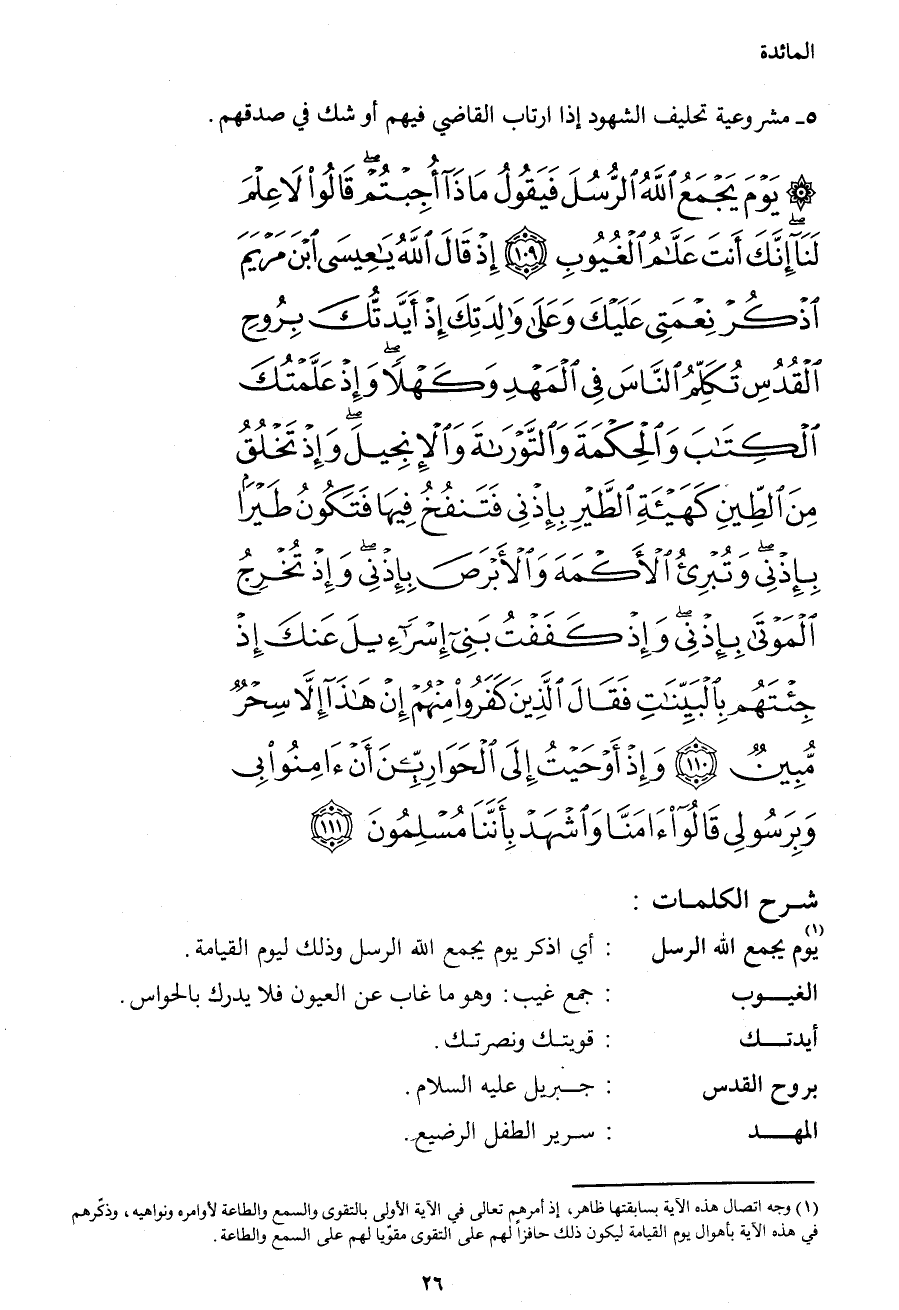 المائدة
٥ـ مشروعية تحليف الشهود إذا ارتاب القاضي فيهم أو شك في صدقهم .
۞ يَوْمَ يَجْمَعُ ٱللَّهُ ٱلرُّسُلَ فَيَقُولُ مَاذَآ أُجِبْتُمْ ۖ قَالُوا۟ لَا عِلْمَ
لَنَآ ۖ إِنَّكَ أَنتَ عَلَّٰمُ ٱلْغُيُوبِ ١٠٩ إِذْ قَالَ ٱللَّهُ يَٰعِيسَى ٱبْنَ مَرْيَمَ
ٱذْكُرْ نِعْمَتِى عَلَيْكَ وَعَلَىٰ وَٰلِدَتِكَ إِذْ أَيَّدتُّكَ بِرُوحِ
ٱلْقُدُسِ تُكَلِّمُ ٱلنَّاسَ فِى ٱلْمَهْدِ وَكَهْلًا ۖ وَإِذْ عَلَّمْتُكَ
ٱلْكِتَٰبَ وَٱلْحِكْمَةَ وَٱلتَّوْرَىٰةَ وَٱلْإِنجِيلَ ۖ وَإِذْ تَخْلُقُ
مِنَ ٱلطِّينِ كَهَيْـَٔةِ ٱلطَّيْرِ بِإِذْنِى فَتَنفُخُ فِيهَا فَتَكُونُ طَيْرًۢا
بِإِذْنِى ۖ وَتُبْرِئُ ٱلْأَكْمَهَ وَٱلْأَبْرَصَ بِإِذْنِى ۖ وَإِذْ تُخْرِجُ
ٱلْمَوْتَىٰ بِإِذْنِى ۖ وَإِذْ كَفَفْتُ بَنِىٓ إِسْرَٰٓءِيلَ عَنكَ إِذْ
جِئْتَهُم بِٱلْبَيِّنَٰتِ فَقَالَ ٱلَّذِينَ كَفَرُوا۟ مِنْهُمْ إِنْ هَٰذَآ إِلَّا سِحْرٌ
مُّبِينٌ ١١٠ وَإِذْ أَوْحَيْتُ إِلَى ٱلْحَوَارِيِّۦنَ أَنْ ءَامِنُوا۟ بِى
وَبِرَسُولِى قَالُوٓا۟ ءَامَنَّا وَٱشْهَدْ بِأَنَّنَا مُسْلِمُونَ ١١١
شرح الكلمات :
(١) يوم يجمع الله الرسل : أي اذكر يوم يجمع الله الرسل وذلك ليوم القيامة .
الغيوب : جمع غيب : وهو ما غاب عن العيون فلا يدرك بالحواس .
أيدتك : قويتك ونصرتك .
بروح القدس : جبريل عليه السلام .
المهد : سرير الطفل الرضيع .
(١) وجه اتصال هذه الآية بسابقتها ظاهر، إذ أمرهم تعالى في الآية الأولى بالتقوى والسمع والطاعة لأوامره ونواهيه ، وذكّرهم
في هذه الآية بأهوال يوم القيامة ليكون ذلك حافزاً لهم على التقوى مقوّيا لهم على السمع والطاعة .
٢٦